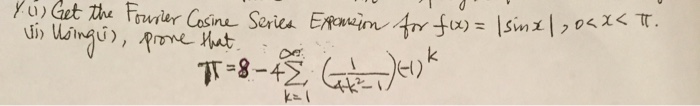 Y. (i) Get the Fourier Cosine Series Expansion for f(x) = |sin x|, 0 < x < π.
(ii) Using (i), prove that
π = 8 - 4 ∑_{k=1}^{∞} (1/(4k²-1)) (-1)^k